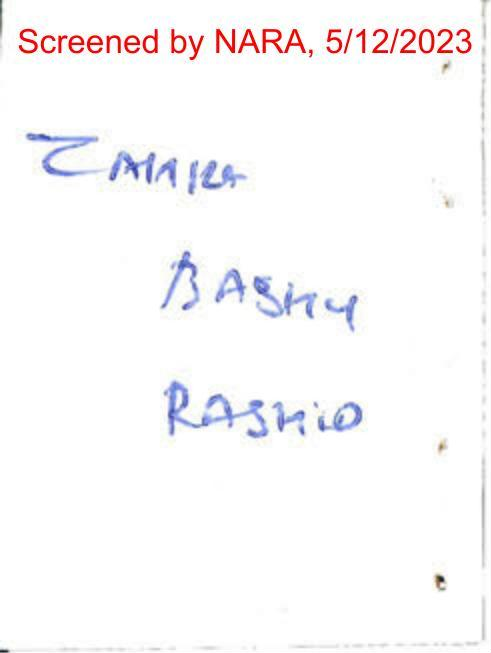 Screened by NARA, 5/12/2023
ZAHRA
BASHY
RASHID